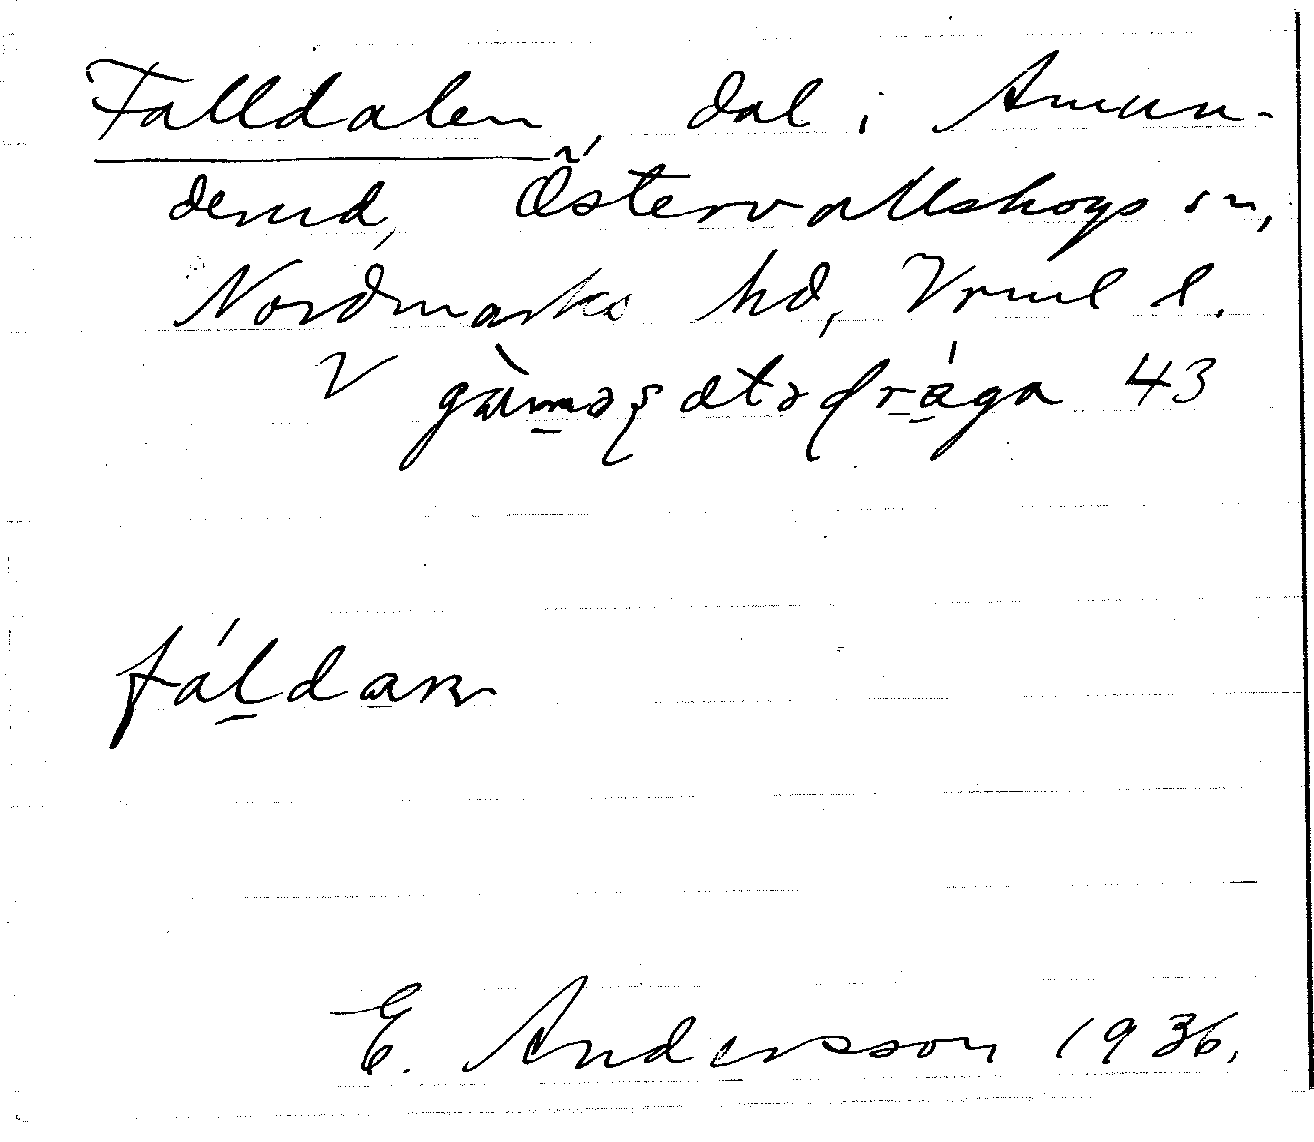 Falldalen, dal i Amun-
derud, Östervallskogs sn,
Nordmarks hd, Vrml l.
V 43
fáldan
E. Andersson 1936.